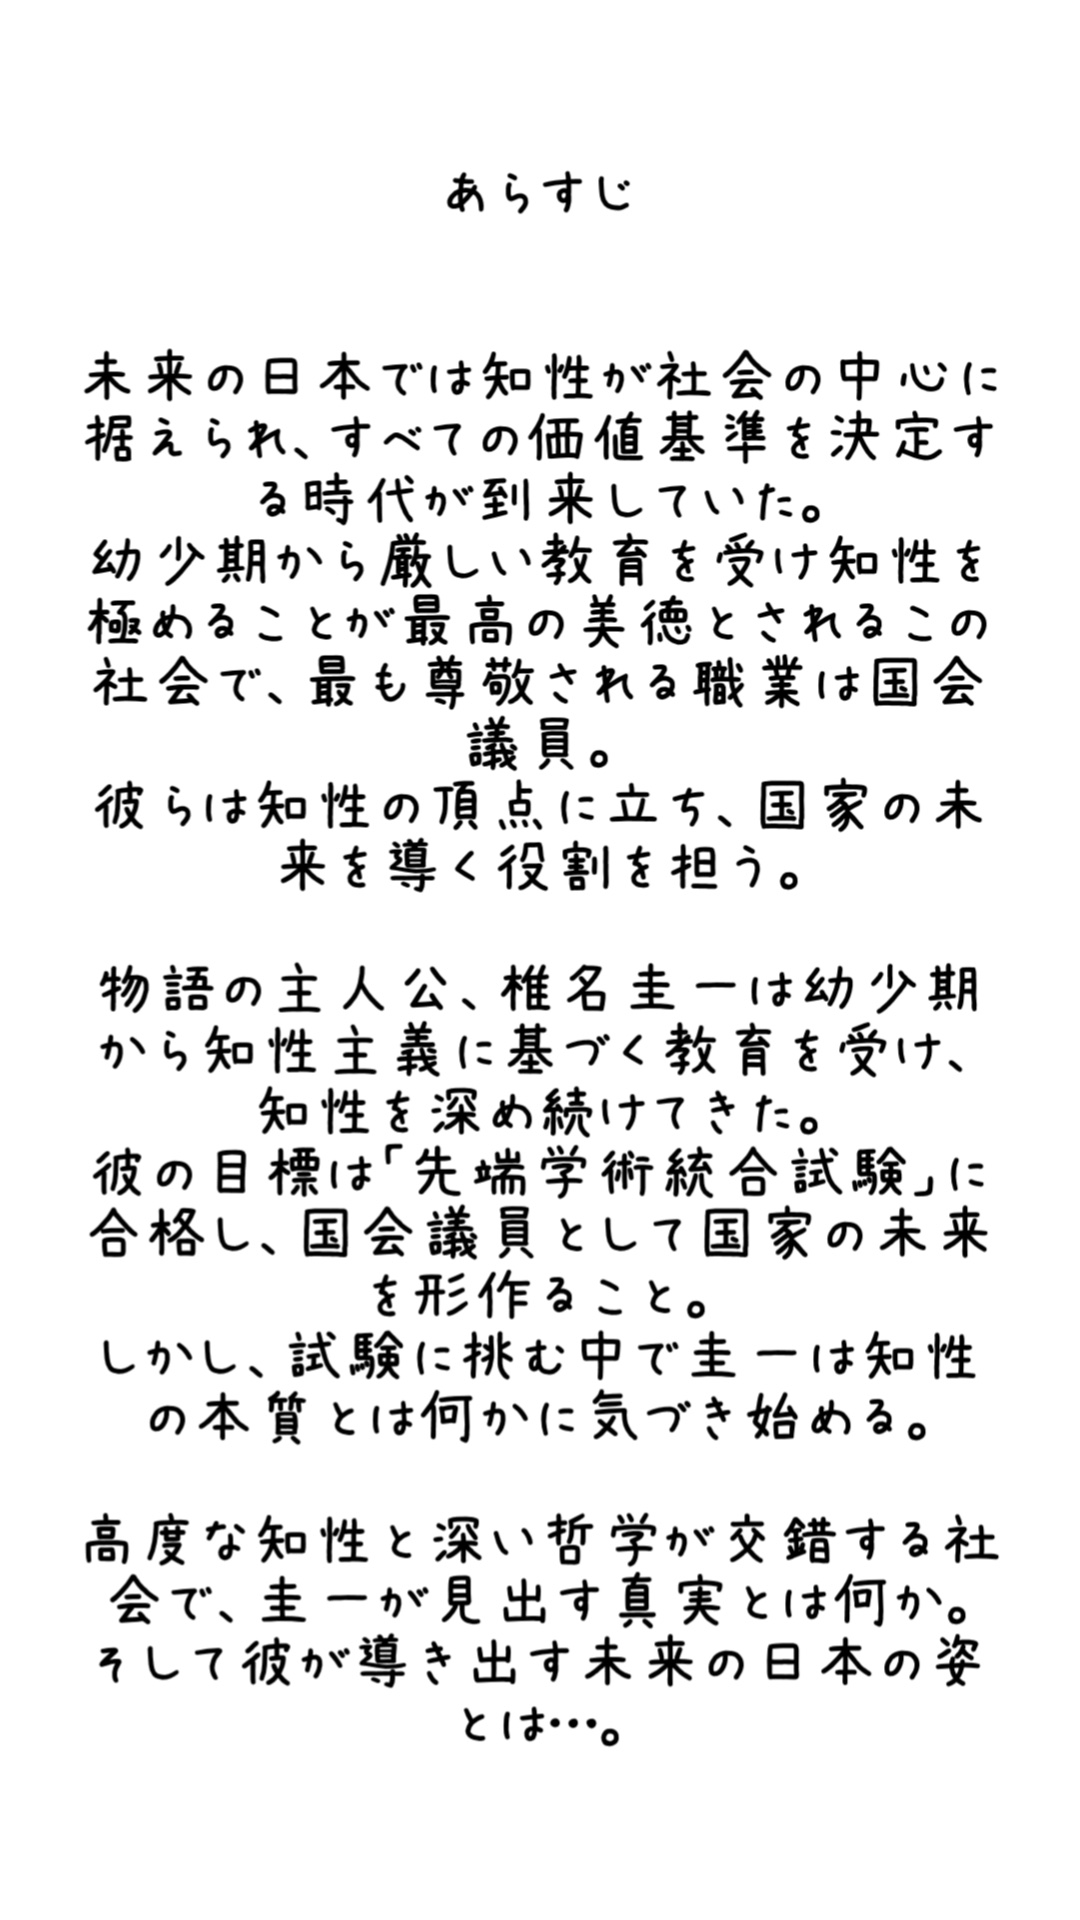 あらすじ
未来の日本では知性が社会の中心に
据えられ、すべての価値基準を決定す
る時代が到来していた。
幼少期から厳しい教育を受け知性を
極めることが最高の美徳とされるこの
社会で、最も尊敬される職業は国会
議員。
彼らは知性の頂点に立ち、国家の未
来を導く役割を担う。
物語の主人公、椎名圭一は幼少期
から知性主義に基づく教育を受け、
知性を深め続けてきた。
彼の目標は「先端学術統合試験」に
合格し、国会議員として国家の未来
を形作ること。
しかし、試験に挑む中で圭一は知性
の本質とは何かに気づき始める。
高度な知性と深い哲学が交錯する社
会で、圭一が見出す真実とは何か。
そして彼が導き出す未来の日本の姿
とは…。